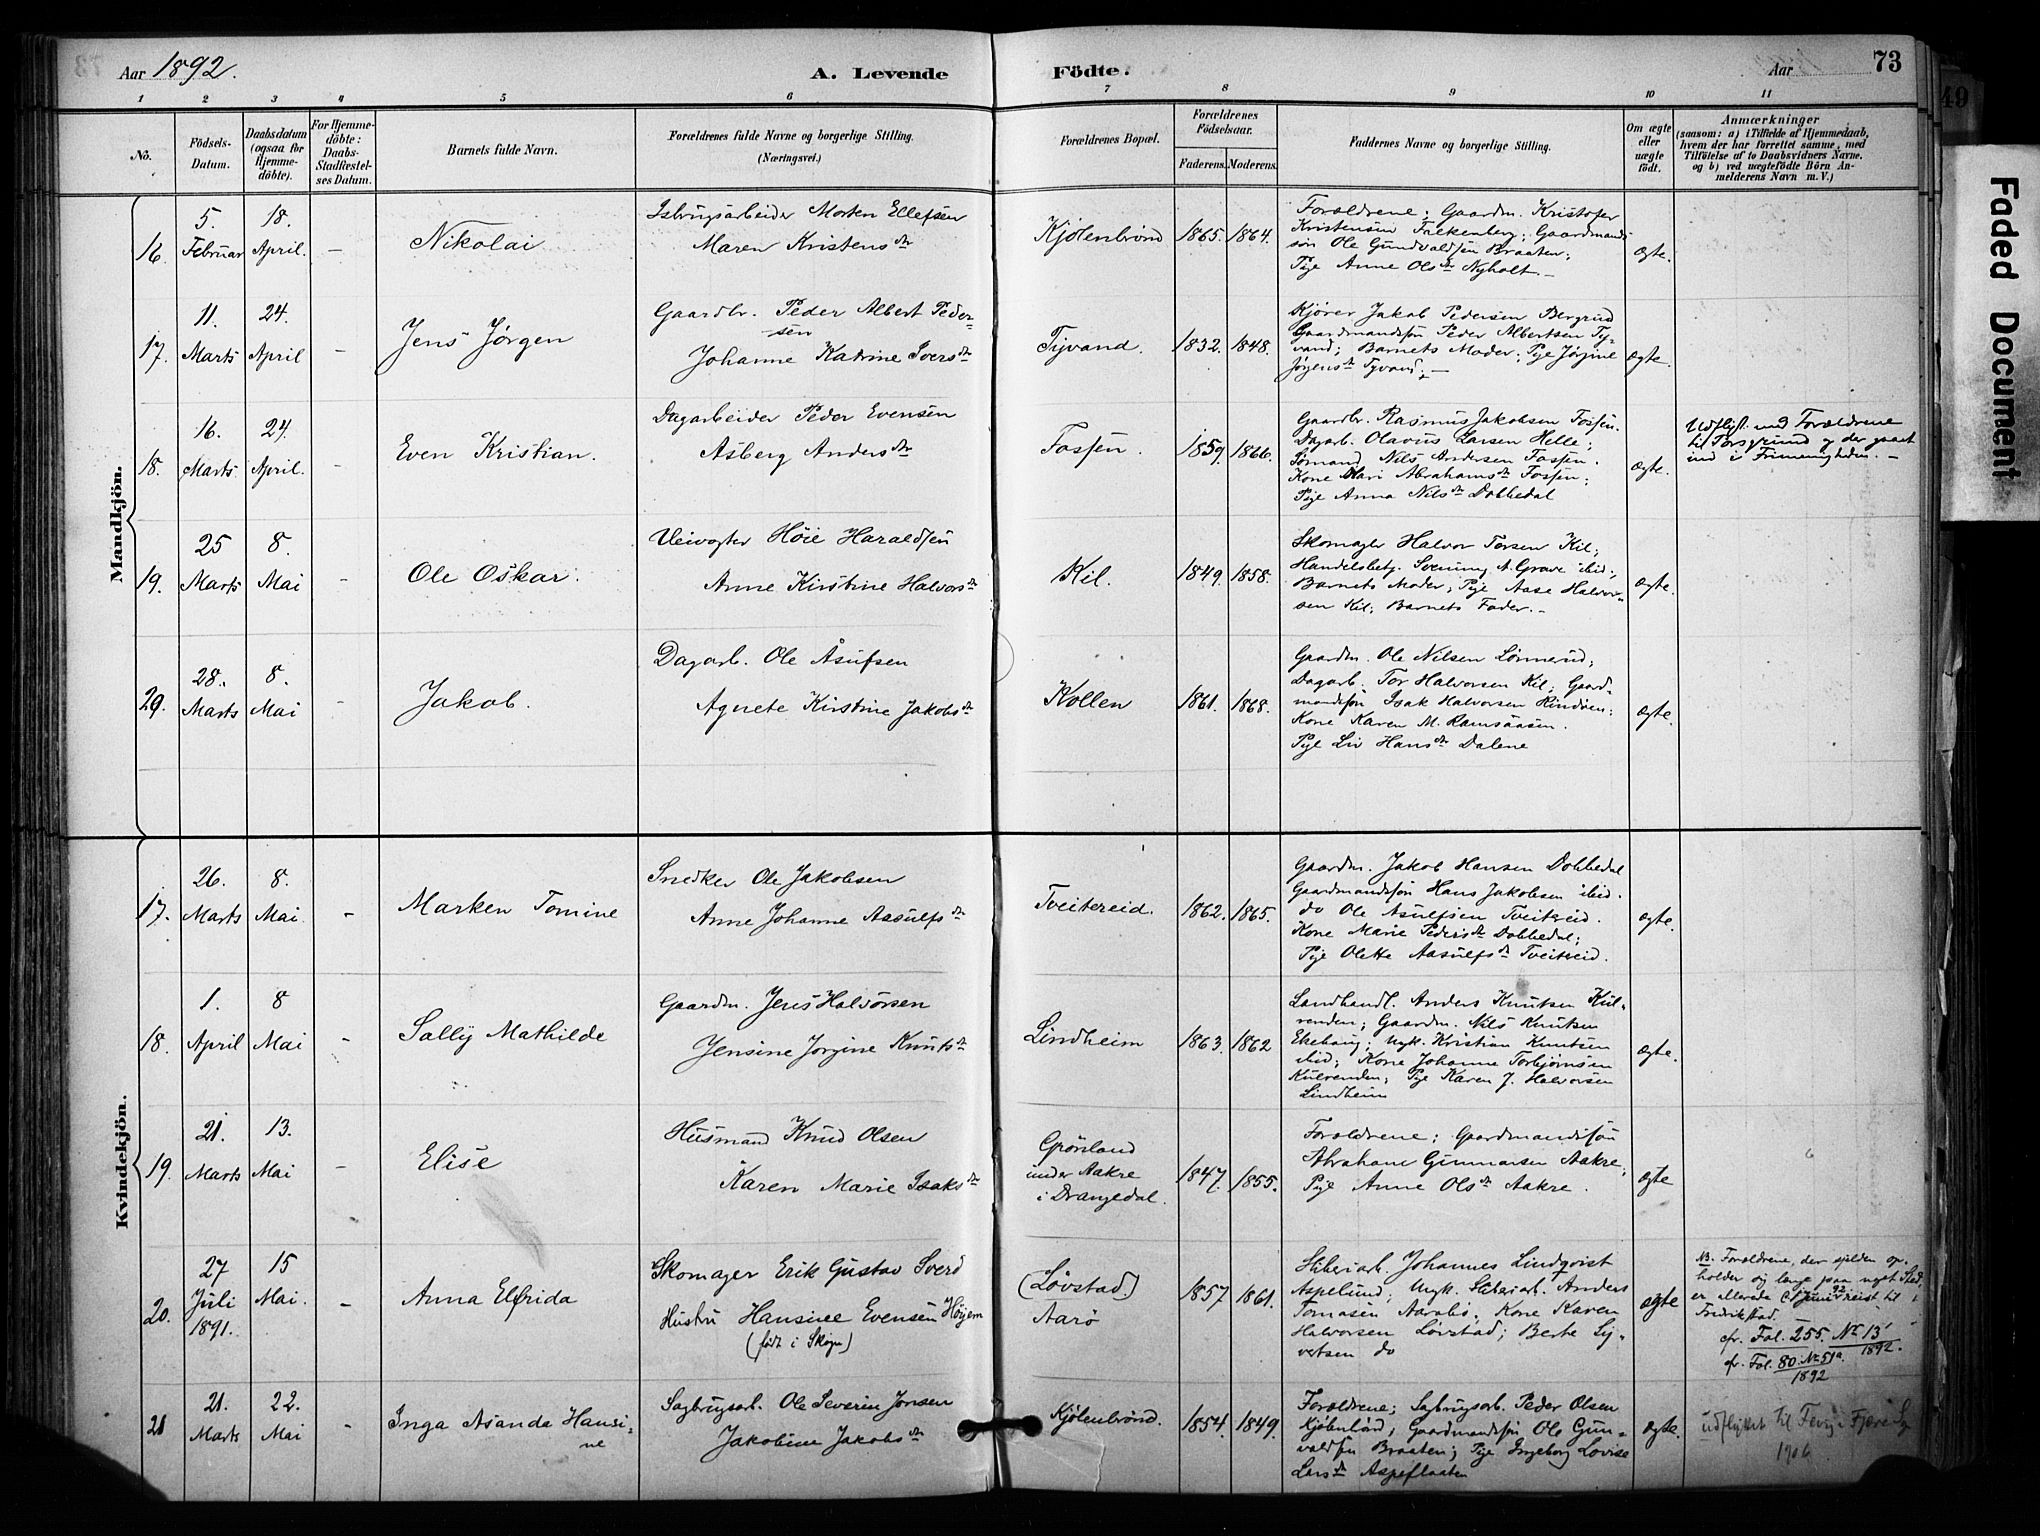 Aar 1892. A. Levende Födte. Aar 73
1 2 3 4 5 6 7 8 9 10 11
No.
Födsels-Datum.
Daabsdatum (ogsaa for Hjemme-döbte).
For Hjemme-döbte: Daabs-Stadfæstel-ses Datum.
Barnets fulde Navn.
Forældrenes fulde Navne og borgerlige Stilling. (Næringsvei.)
Forældrenes Bopæl.
Forældrenes Födselsaar.
Faderens. Moderens.
Faddernes Navne og borgerlige Stilling.
Om ægte eller uægte födt.
Anmærkninger
(saasom: a) i Tilfælde af Hjemmedaab,
hvem der har forrettet samme, med
Tilföielse af to Daabsvidners Navne.
og b) ved uægtefödte Börn An-
melderens Navn m. V.)
Mandkjön.
16. 5. Februar 18. April. – Nikolai
Isbrugsarbeider Morten Ellefsen
Maren Kristensdr
Kjölenbrönd 1865. 1864.
Forældrene; Gaardm. Kristofer
Kristensen Falkenberg; Gaardmands
søn Ole Gundvaldsen Braaten;
Pige Anne Olsdr Nyholt. –
ægte.
17. 11. Marts 24. April – Jens Jörgen
Gaardbr. Peder Albert Peder-
sen
Johanne Katrine Iversdr
Tyvand. 1832. 1848.
Kjører Jakob Pedersen Bergrud
Gaardmandssøn Peder Albertsen Ty-
vand; Barnets Moder; Pige Jörgine
Jörgensdr Tyvand; –
ægte.
18. 16. Marts 24. April. – Even Kristian.
Dagarbeider Peder Evensen
Asberg Andersdr
Fossen. 1859. 1866.
Gaardbr. Rasmus Jakobsen Fossen.
Dagarb. Olavus Larsen Helle;
Sömand Nils Andersen Fossen.
Kone Mari Abrahamsdr Fossen;
Pige Anna Nilsdr Dobbedal
ægte.
Udflyt. med Forældrene
til Porsgrund og der gaaet
ind i Frimenigheden. –
19. 25 Marts 8. Mai – Ole Oskar.
Veivogter Höie Haraldsen
Anne Kirstine Halvorsdr
Kil. 1849. 1858.
Skomager Halvor Torsen Kil;
Handelsbetj. Svenung A. Grave ibid.;
Barnets Moder; Pige Aase Halvor-
sen Kil; Barnets Fader. –
ægte.
20. 28. Marts 8. Mai – Jakob.
Dagarb. Ole Åsulfsen
Agnete Kirstine Jakobsdr
Kollen 1861. 1868.
Gaardm. Ole Nilsen Lönnerud;
Dagarb. Tor Halvorsen Kil; Gaard-
mandssøn Isak Halvorsen
Kone Karen M. Ramsaasen.
Pige Liv Hansdr Dalene
ægte.
Kvindekjön.
17. 26. Marts 8. Mai – Marken Tomine
Snedker Ole Jakobsen
Anne Johanne Aasulfsdr
Tveitereid. 1862. 1865.
Gaardm. Jakob Hansen Dobbedal
Gaardmandssøn Hans Jakobsen ibid.
do Ole Asulfsen Tveitreid.
Kone Marie Pedersdr Dobbedal;
Pige Olette Aasulfsdr Tveitreid.
ægte.
18. 1. April 8 Mai – Sally Mathilde
Gaardm. Jens Halvorsen
Jensine Jorgine Knutsdr
Lindheim 1863. 1862
Landhandl. Anders Knutsen Kul-
renden; Gaardm. Nils Knutsen
Ekehaug; Ungk. Kristian Knutsen
ibid; Kone Johanne Torbjørnsen
Kulrenden; Pige Karen J. Halvorsen
Lindheim
ægte.
19. 21. Marts 13. Mai – Elise
Husmand Knud Olsen
Karen Marie Isaksdr
Grönland
under Aakre
i Drangedal.
1847. 1855.
Forældrene; Gaardmandssön
Abraham Gunnarsen Aakre;
Pige Anne Olsdr Aakre.
ægte
20. 27 Juli 1891. 15 Mai. – Anna Elfrida
Skomager Erik Gustav Sverd
Hustru Hansine Evensen Höyem
(født i Skogn)
(Lövstad)
Aarö
1857 1861.
Sliberiarb. Johannes Lindqvist
Aspelund; Ungk. Sliberiarb. Anders
Tomasen Aarebö; Kone Karen
Halvorsen Lövstad; Berte Sy-
vertsen do
ægte
NB. Forældrene, der sjelden op-
holder sig længe paa noget Sted,
er allerede (1 Juni 92) reist til
Fredrikstad.
cfr. Fol. 255. No 13 1892.
cfr. Fol. 80. No 51a. 1892
21 21. Marts 22. Mai – Inga Asanda Hansi-
ne
Sagbrugsarb. Ole Severin Jonsen
Jakobine Jakobsdr
Kjölenbrönd. 1854. 1849.
Forældrene; Sagbrugsarb. Peder Olsen
Kjölenbrönd; Gaardmandssön Ole Gun-
valdsen Braaten; Pige Ingeborg Lovise
Larsdr Aspeflaaten
ægte.
udflyttet til Fevig i Fjære Sg
1906
49
Faded Document